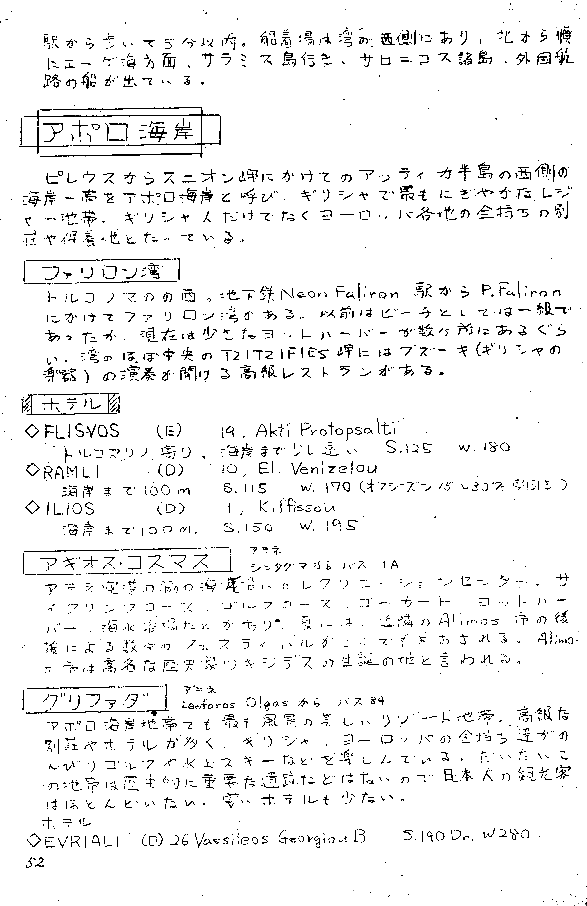 駅から歩いて5分以内。船着場は湾の西側にあり、北から順
にエーゲ海方面、サラミス島行き、サロニコス諸島、外国航
路の船が出ている。
アポロ海岸
ピレウスからスニオン岬にかけてのアッティカ半島の西側の
海岸一帯をアポロ海岸と呼び、ギリシャで最もにぎやかなレジ
ャー地帯。ギリシャ人だけでなくヨーロッパ各地の金持ちの別
荘や保養地となっている。
ファリロン湾
の西。地下鉄Neon Faliron 駅から P.Faliron
にかけてファリロン湾がある。以前はビーチとしては一級で
あったが、現在は少さなヨットハーバーが数ヶ所にあるぐら
い。湾のほぼ中央のTZITZIFIES岬にはブズーキ(ギリシャの
楽器)の演奏が聞ける高級レストランがある。
ホテル
◇FLISVOS (E) 19, Akti Protopsalti
海岸まで少し遠い S.125 W.180
◇RAMLI (D) 10, El. Venizelou
海岸まで100m S.115 W.170 (オフシーズン15〜30% 割引)
◇ILIOS (D) 1, Kiffissou
海岸まで100m. S.150 W.195
アギオス・コスマス アテネ シンタグマから バス 1A
アテネ空港の前の海岸沿いのレクリエーションセンター。サ
イクリングコース、ゴルフコース、ゴーカート、ヨットハー
バー、海水浴場などがあり、夏には、近隣のAlimos 市の後
援による数々のフェスティバルがここでもよおされる。Alimo-
s市は高名な歴史家ツキジデスの生誕の地と言われる。
グリファダ アテネ Zanforos Olgasから バス84
アポロ海岸地帯でも最も風景の美しいリゾート地帯。高級な
別荘やホテルが多く、ギリシャ、ヨーロッパの金持ち達がの
んびりゴルフや水上スキーなどを楽しんでいる。だいたいこ
の地帯は歴史的に重要な遺跡などはないので日本人の観光客
はほとんどいない。安いホテルも少ない。
ホテル
◇EVRIALI (D) 26 Vassileos Georgiou B S.190 Dr. W280
52